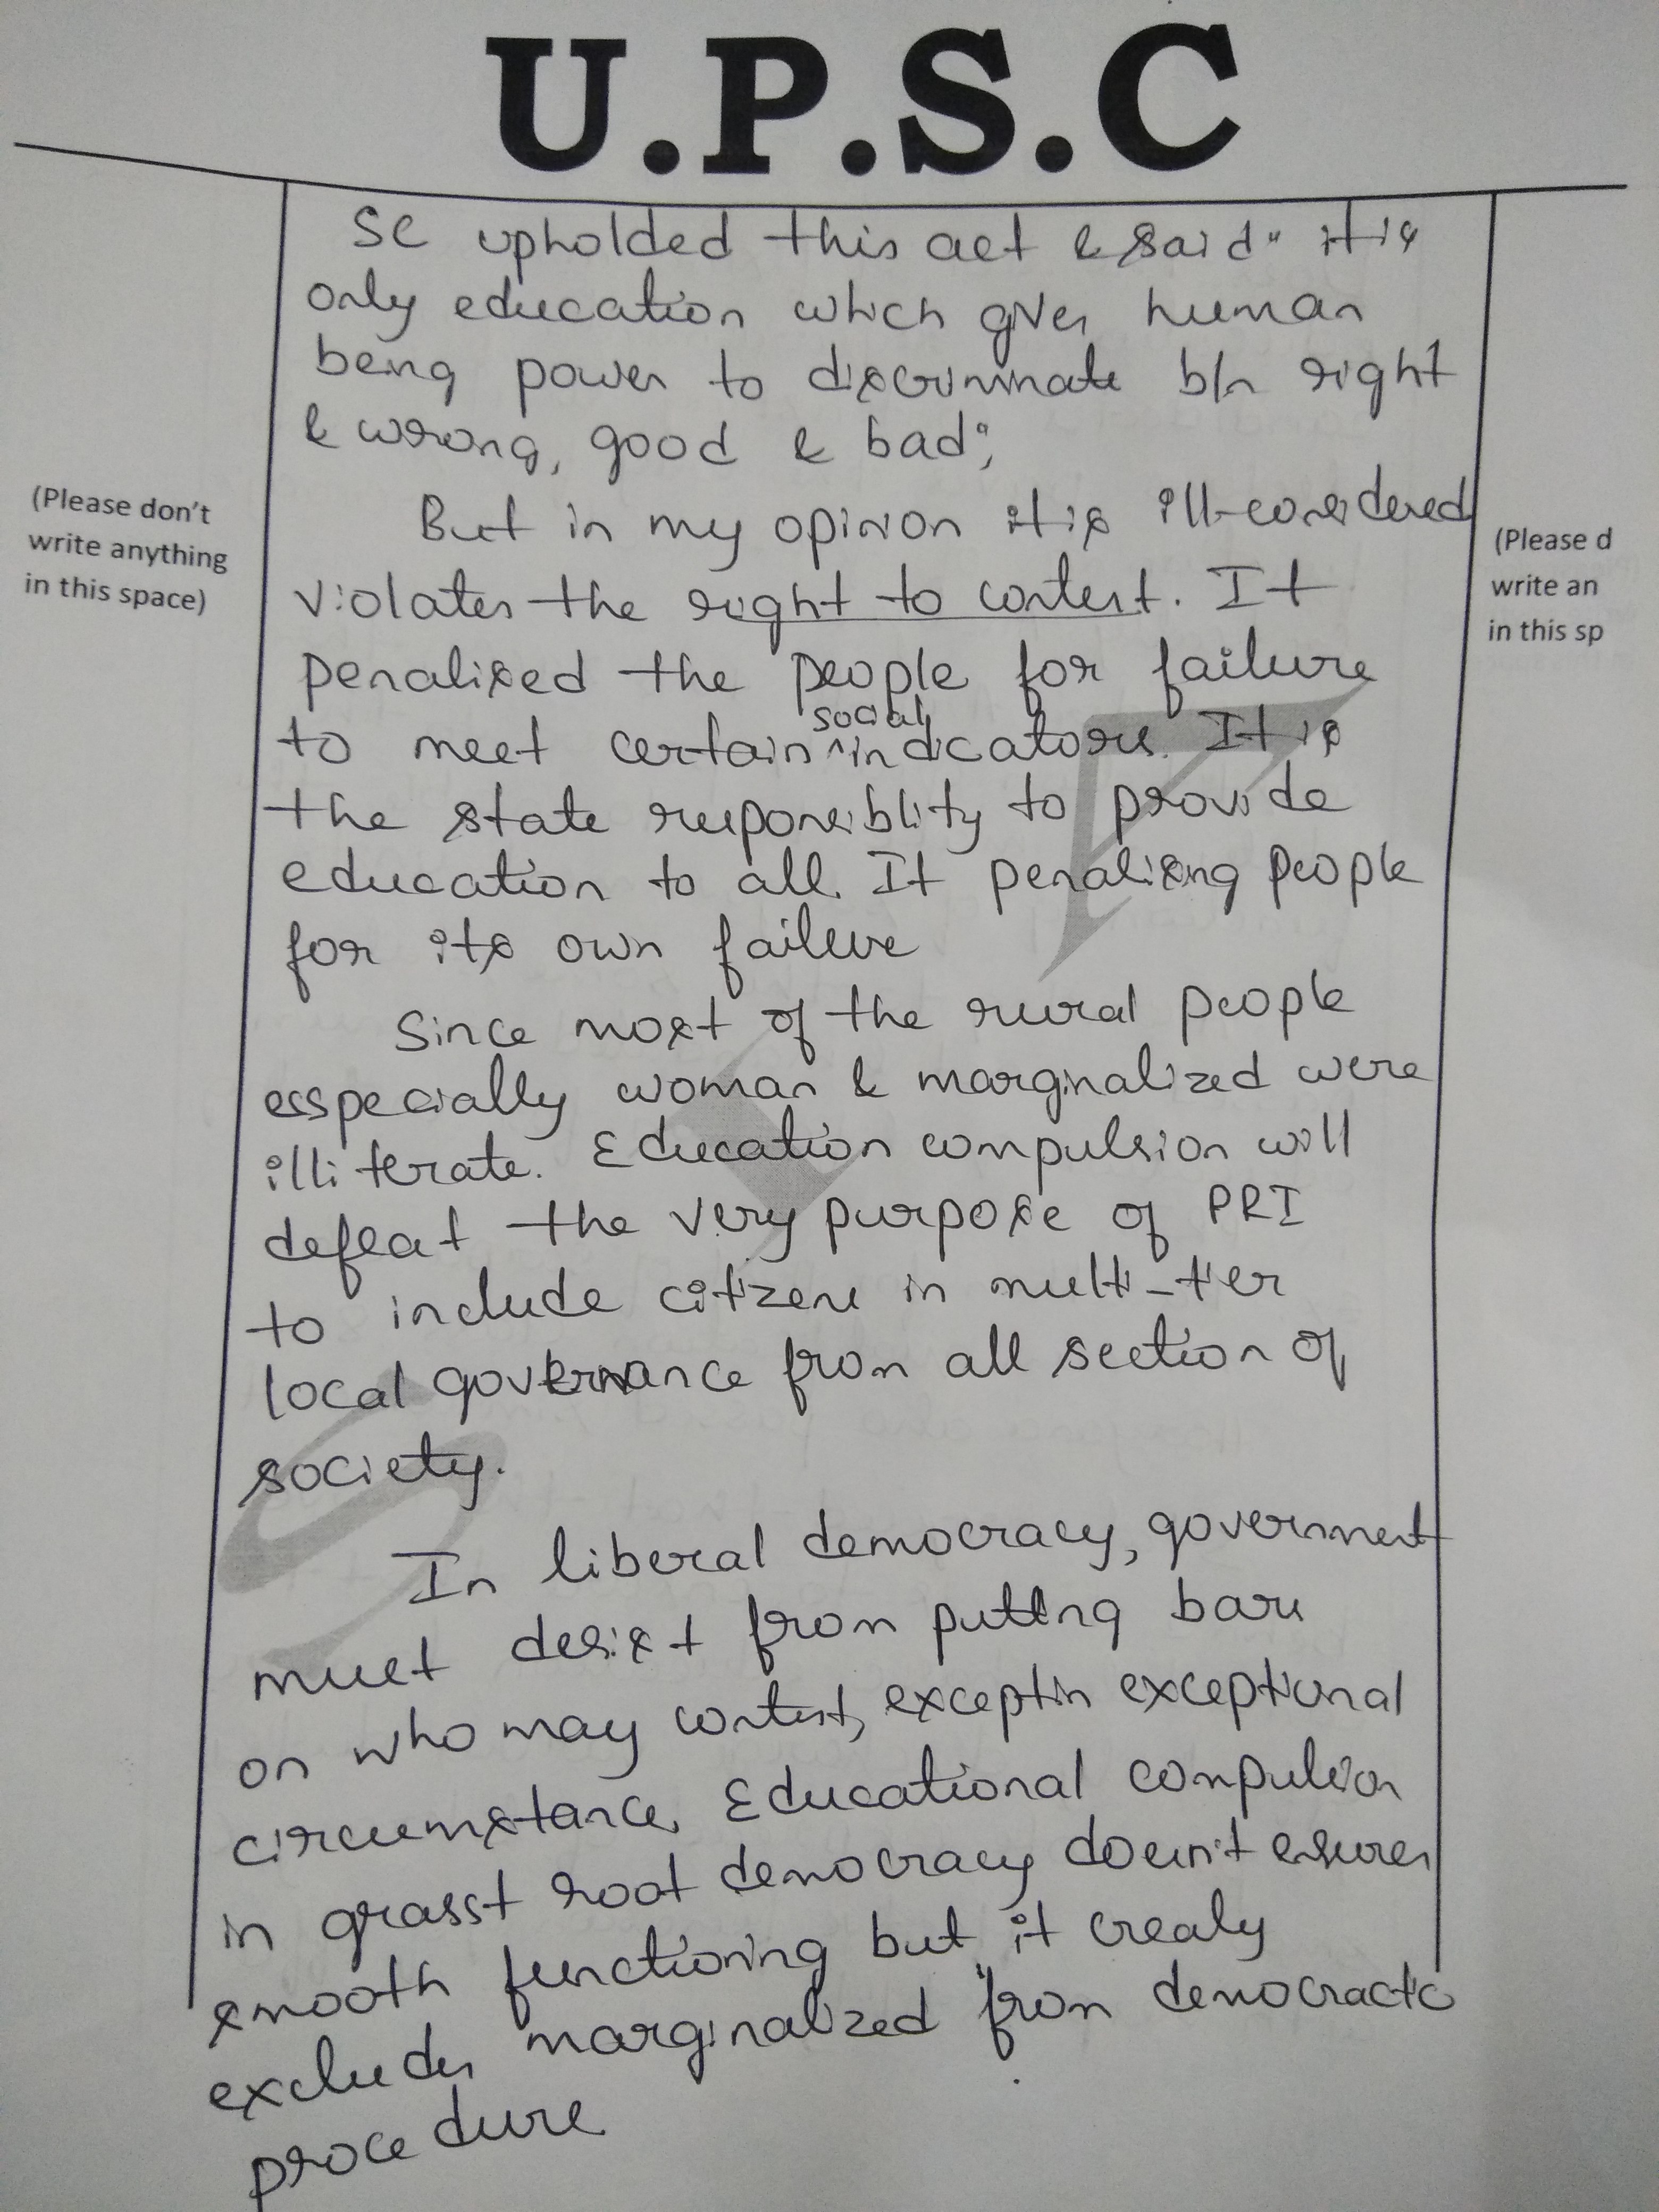 U.P.S.C
SC upholded this act & said " it is
only education which gives human
being power to discriminate b/n right
& wrong, good & bad";
(Please don't
write anything
in this space)
But in my opinion it is ill-considered
violates the right to contest. It
penalised the people for failure
to meet certain social indicators. It is
the state responsiblity to provide
education to all. It penalising people
for its own failure
(Please d
write an
in this sp
Since most of the rural people
esspecially woman & marginalized were
illiterate. Education compulsion will
defeat the very purpose of PRI
to include citizens in multi-tier
local governance from all section of
society.
In liberal democracy, government
must desist from putting bars
on who may contest, except in exceptional
circumstance. Educational compulsion
in grasst root democracy doesn't esures
smooth functioning but it crealy
excludes marginalized from democractic
procedure